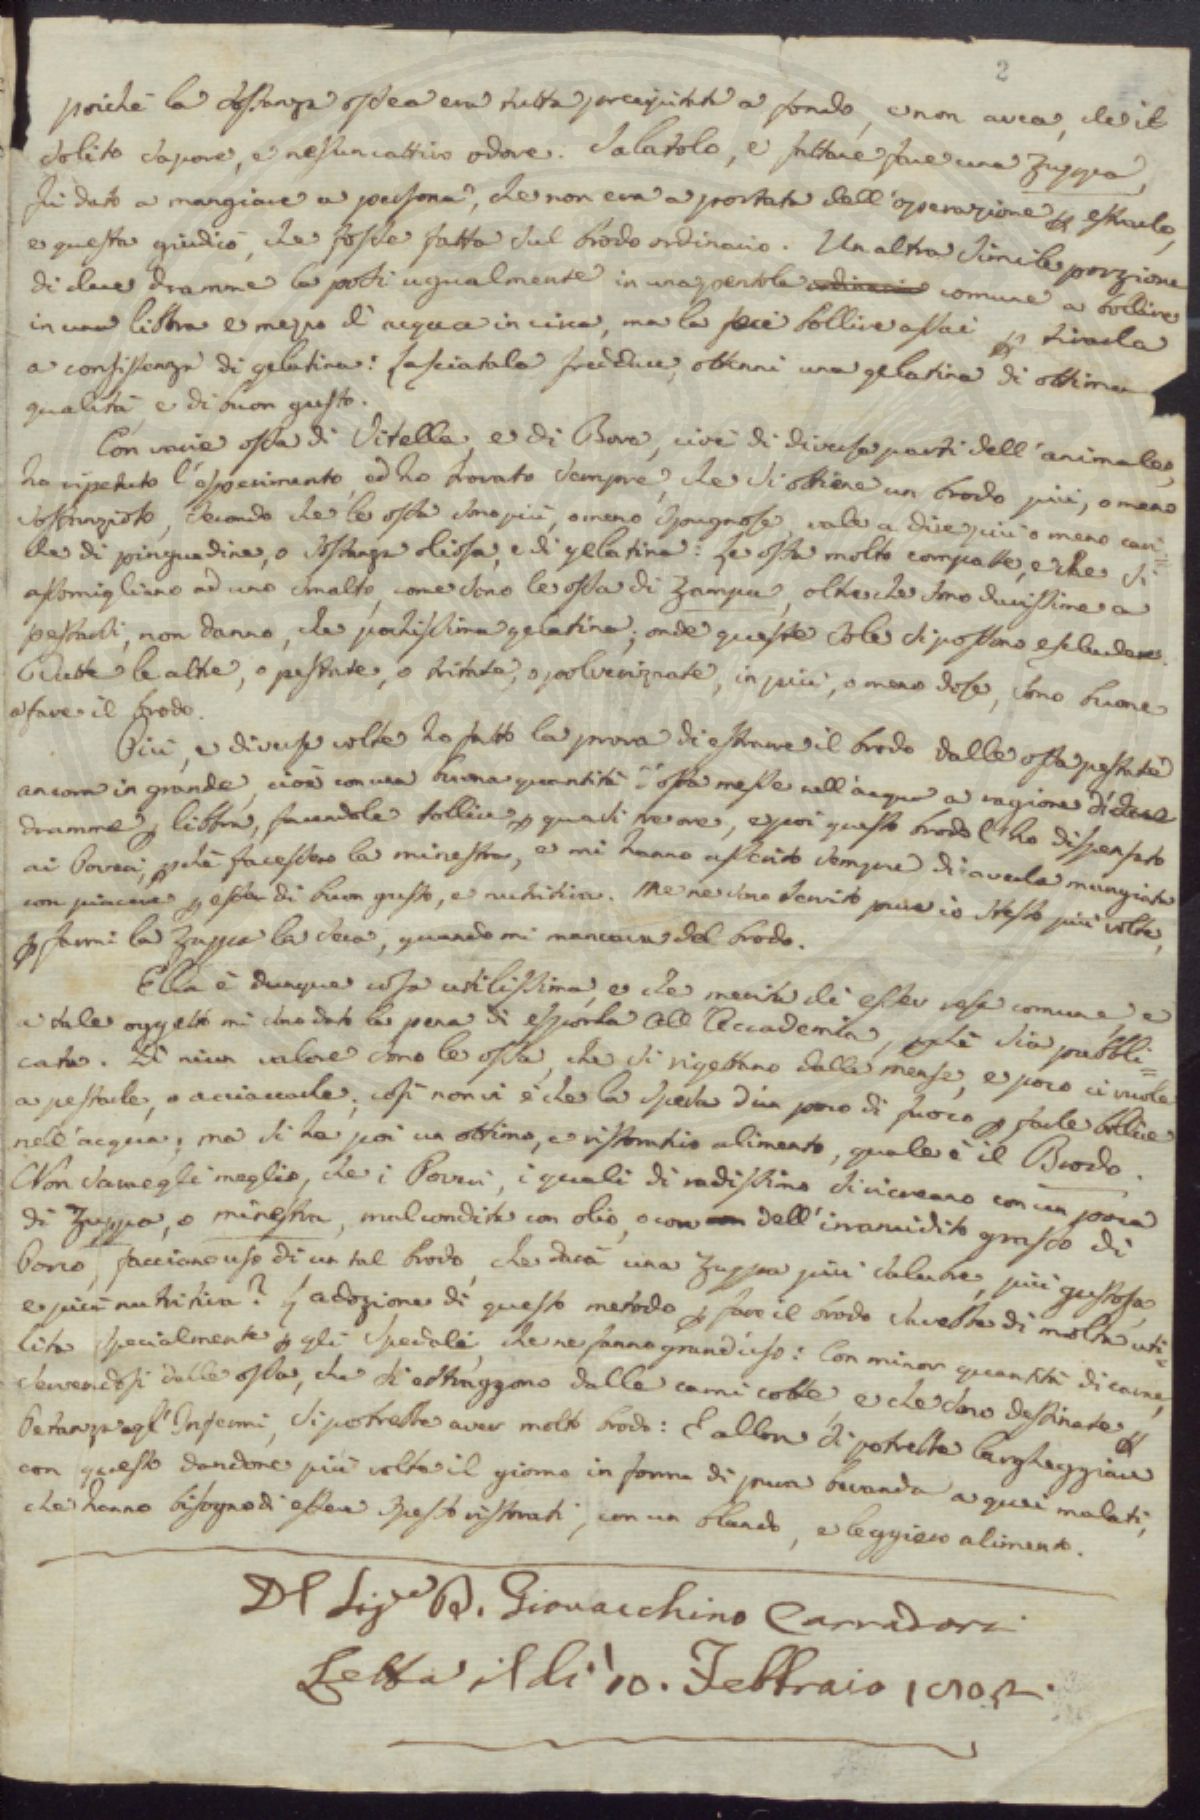 2
poichè la sostanza ossea era tutta precipitata a fondo, e non avea, che il
solito sapore, e nessun cattivo odore. Salatolo, e fattane fare una Zuppa,
fù dato a mangiare a persona, che non era a portata dell'operazione p estrarlo,
e questa giudicò, che fosse fatta sul brodo ordinario. Un altra simile porzione
di due dramme la posi ugualmente in una pentola ordinaria comune a bollire
in una libbra e mezzo d'acqua in circa, ma la feci bollire assai p tirarla
a consistenza di gelatina: lasciatala freddare, ottenni una gelatina di ottima
qualità, e di buon gusto.
Con varie ossa di Vitella, e di Bove, cioè di diverse parti dell'animale,
ho ripetuto l'esperimento, ed ho trovato sempre, che si ottiene un brodo più, o meno
sostanzioso, secondo che le ossa sono più, o meno spugnose, vale a dire più o meno cari=
che di pinguedine, o sostanza oliosa, e di gelatina: Le ossa molto compatte, e che si
assomigliano ad uno smalto, come sono le ossa di Zampa, oltre che sono durissime a
pestarsi, non danno, che pochissima gelatina; onde queste sole si possono escludere.
Tutte le altre, o pestate, o tritate, o polverizzate, in più, o meno dose, sono buone
a fare il brodo.
Più, e diverse volte ho fatto la prova di estrarre il brodo dalle ossa pestate
ancora in grande, cioè con una buona quantità d'ossa messe nell'acqua a ragione di due
dramme p libbra, facendole bollire p quasi tre ore, e poi questo brodo l'ho dispensato
ai Poveri, pchè facessero la minestra, e mi hanno asserito sempre di averla mangiata
con piacere p esser di buon gusto, e nutritiva. Me ne sono servito pure io stesso più volte,
p farmi la Zuppa la sera, quando mi mancava del brodo.
Ella è dunque cosa utilissima, e che merita di esser resa comune e
a tale oggetto mi sono dato la pena di esporla all'Accademia, pchè sia pubbli=
cata. Di niun valore sono le ossa, che si rigettano dalle mense, e poco ci vuole
a pestarle, o acciaccarle; così non vi è che la spesa d'un poco di fuoco p farle bollire
nell'acqua; ma si ha poi un ottimo, e ristorativo alimento, quale è il Brodo.
Non sarebbe meglio, che i Poveri, i quali di radissimo si ricreano con un poca
di Zuppa, o minestra, mal condita con olio, o con dell'invanidito grasso di
Porco, facciano uso di un tal brodo, che darà una Zuppa più salubre, più gustosa,
e più nutritiva? L'adozione di questo metodo p fare il brodo sarebbe di molta uti=
lità specialmente p gli Spedali, che ne fanno grand'uso: Con minor quantità di carne,
servendosi delle ossa, che si estraggono dalle carni cotte, e che sono destinate p
Pietanza agl'Infermi, si potrebbe aver molto brodo: E allora si potrebbe largheggiare
con questo dandone più volte il giorno in forma di pura bevanda a quei malati,
che hanno bisogno di essere spesso ristorati, con un blando, e leggiero alimento.
Del Sigre D. Giovacchino Carradori
Letta il dì 10. Febbraio 1802.